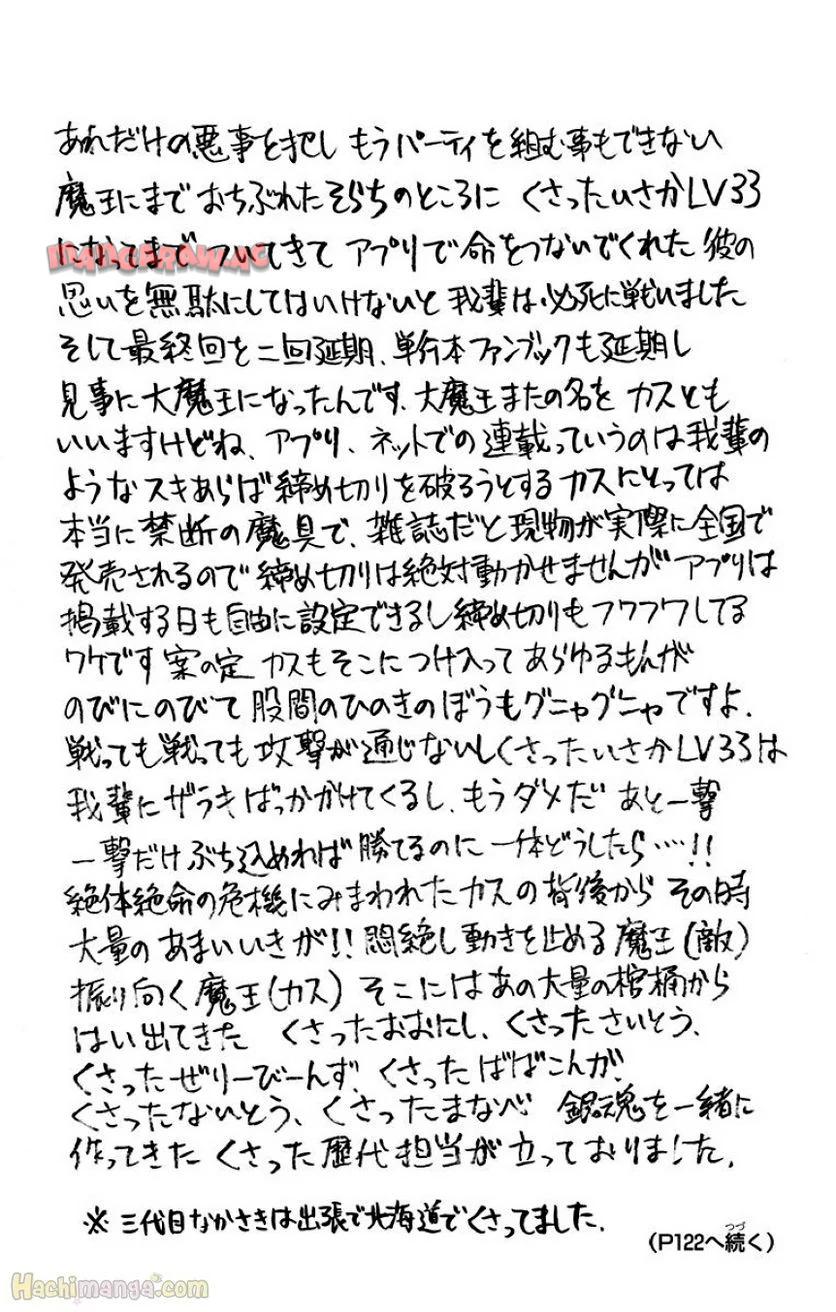 あれだけの悪事を犯し もうパーティを組む事もできない
魔王にまで おちぶれたそらちのところに くさったいさかLV33
になってまで ついてきて アプリで命をつないでくれた彼の
MANGARAW.AC
思いを無駄にしてはいけないと 我輩は必死に戦いました
そして最終回を二回延期、単行本ファンブックも延期し
見事に大魔王になったんです、大魔王またの名を カスとも
いいますけどね、アプリ、ネットでの連載っていうのは我輩の
ようなスキあらば締め切りを破ろうとするカスにとっては
本当に禁断の魔具で、雑誌だと現物が実際に全国で
発売されるので締め切りは絶対動かせませんがアプリは
掲載する日も自由に設定できるし締め切りもフワフワしてる
ワケです 案の定 カスもそこにつけ入って あらゆるもんが
のびにのびて 股間のひのきのぼうもグニャグニャですよ.
戦っても戦っても攻撃が通じないしくさったいさかLV33は
我輩にザラキばっかかけてくるし、もうダメだ あと一撃
一撃だけぶち込めれば 勝てるのに 一体どうしたら…‥!!
絶体絶命の危機にみまわれたカスの背後から その時
大量の あまいいきが!! 悶絶し動きを止める魔王(敵)
振り向く魔王(カス) そこにはあの大量の棺桶から
はい出てきた くさったおおにし、くさったさいとう、
くさったぜりーびーんず、くさったばばこんが、
くさったないとう、くさったまなべ 銀魂を一緒に
作ってきた くさった歴代担当が立っておりました.
※ 三代目なかさきは出張で北海道でくさってました.
(P122へ続く)
つづ
Hachimanga.com